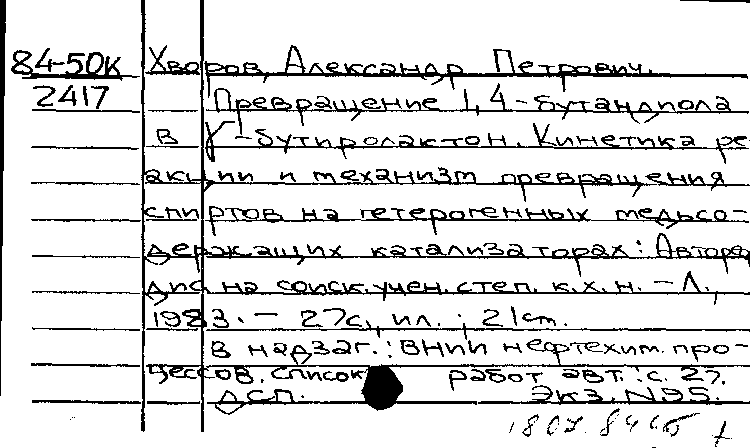 84-50к Хворов, Александр Петрович.
2417 Превращение 1,4-бутандиола
в γ-бутиролактон. Кинетика ре
акции и механизм превращения
спиртов на гетерогенных медьсо-
держащих катализаторах: Авторед
дис. на соиск. учен. степ. к.х.н. - Л.,
1983. - 27с., ил.; 21см.
В надзаг.: ВНИИ нефтехим. про-
цессов. Список работ авт.: с. 27.
ДСП. Экз. N95.